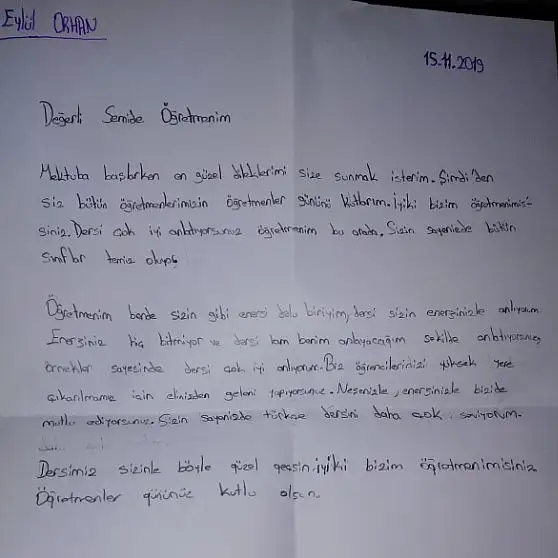 Eylül ORHAN
15.11.2019
Değerli Semide Öğretmenim
Mektuba başlarken en güzel dileklerimi size sunmak isterim. Şimdi'den
siz bütün öğretmenlerimizin öğretmenler gününü kutlarım. İyiki bizim öğretmenimis-
siniz. Dersi çok iyi anlatıyorsunuz öğretmenim bu arada. Sizin sayenizde bütün
sınıflar temiz oluyor
Öğretmenim bende sizin gibi enerji dolu biriyim, dersi sizin enerjinizle anlıyorum.
Enerjiniz hiç bitmiyor ve dersi tam benim anlayacağım şekilde anlatıyorsunuz
örnekler sayesinde dersi çok iyi anlıyorum. Biz öğrencilerinizi yüksek yere
çıkarılmamız için elinizden geleni yapıyorsunuz. Neşenizle, enerjinizle bizide
mutlu ediyorsunuz. Sizin sayenizde türkçe dersini daha çok seviyorum.
Dersimiz sizinle böyle güzel geçsin. iyiki bizim öğretmenimisiniz
Öğretmenler gününüz kutlu olsun.